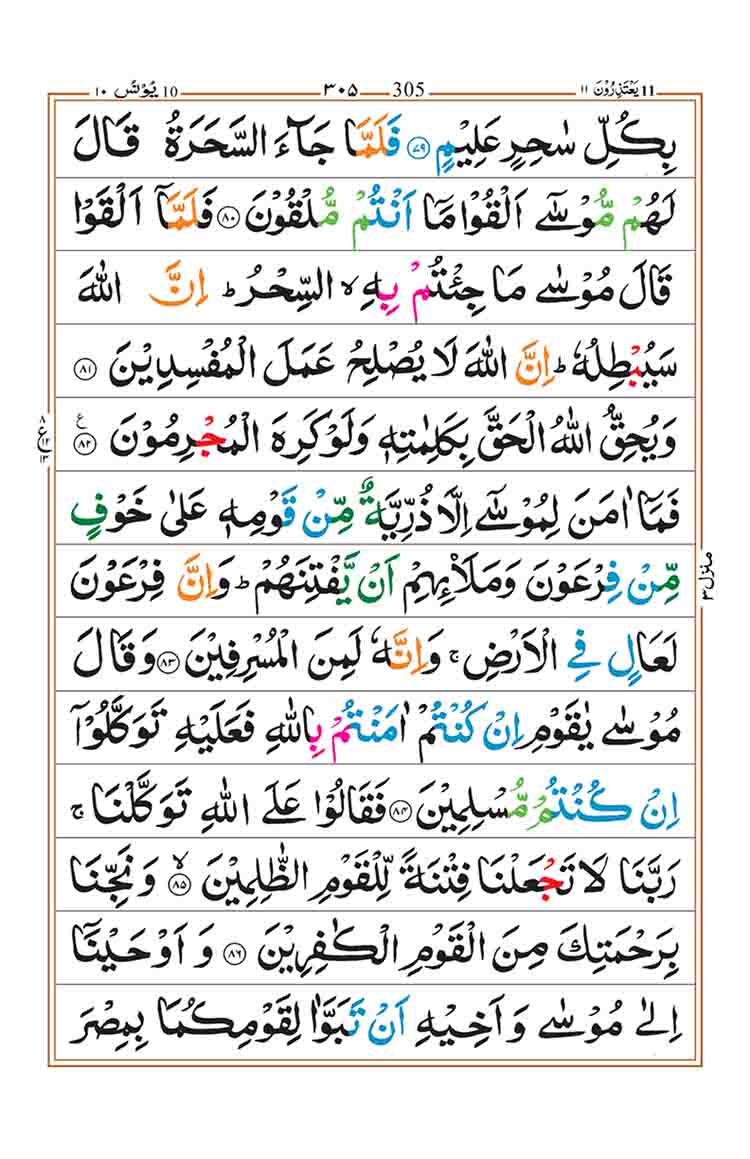 يَعْتَذِرُوْنَ ١١ 11 ٣٠٥ 305 يُوْنُس ١٠ 10
بِكُلِّ سٰحِرٍ عَلِيْمٍ ﴿٧٩﴾ فَلَمَّا جَآءَ السَّحَرَةُ قَالَ
لَهُمْ مُّوْسٰٓى اَلْقُوْا مَاۤ اَنْتُمْ مُّلْقُوْنَ ﴿٨٠﴾ فَلَمَّاۤ اَلْقَوْا
قَالَ مُوْسٰى مَا جِئْتُمْ بِهِ ۙ السِّحْرُ ؕ اِنَّ اللّٰهَ
سَيُبْطِلُهٗ ؕ اِنَّ اللّٰهَ لَا يُصْلِحُ عَمَلَ الْمُفْسِدِيْنَ ﴿٨١﴾
وَيُحِقُّ اللّٰهُ الْحَقَّ بِكَلِمٰتِهٖ وَلَوْ كَرِهَ الْمُجْرِمُوْنَ ﴿٨٢﴾ ع
٨
ع ١٢
١٣
فَمَاۤ اٰمَنَ لِمُوْسٰٓى اِلَّا ذُرِّيَّةٌ مِّنْ قَوْمِهٖ عَلٰى خَوْفٍ
مِّنْ فِرْعَوْنَ وَمَلَا۟ئِهِمْ اَنْ يَّفْتِنَهُمْ ؕ وَاِنَّ فِرْعَوْنَ
منزل ٣
لَعَالٍ فِي الْاَرْضِ ۚ وَاِنَّهٗ لَمِنَ الْمُسْرِفِيْنَ ﴿٨٣﴾ وَقَالَ
مُوْسٰى يٰقَوْمِ اِنْ كُنْتُمْ اٰمَنْتُمْ بِاللّٰهِ فَعَلَيْهِ تَوَكَّلُوْۤا
اِنْ كُنْتُمْ مُّسْلِمِيْنَ ﴿٨٤﴾ فَقَالُوْا عَلَى اللّٰهِ تَوَكَّلْنَا ۚ
رَبَّنَا لَا تَجْعَلْنَا فِتْنَةً لِّلْقَوْمِ الظّٰلِمِيْنَ ﴿٨٥﴾ ۙ وَنَجِّنَا
بِرَحْمَتِكَ مِنَ الْقَوْمِ الْكٰفِرِيْنَ ﴿٨٦﴾ وَاَوْحَيْنَاۤ
اِلٰى مُوْسٰى وَاَخِيْهِ اَنْ تَبَوَّاٰ لِقَوْمِكُمَا بِمِصْرَ